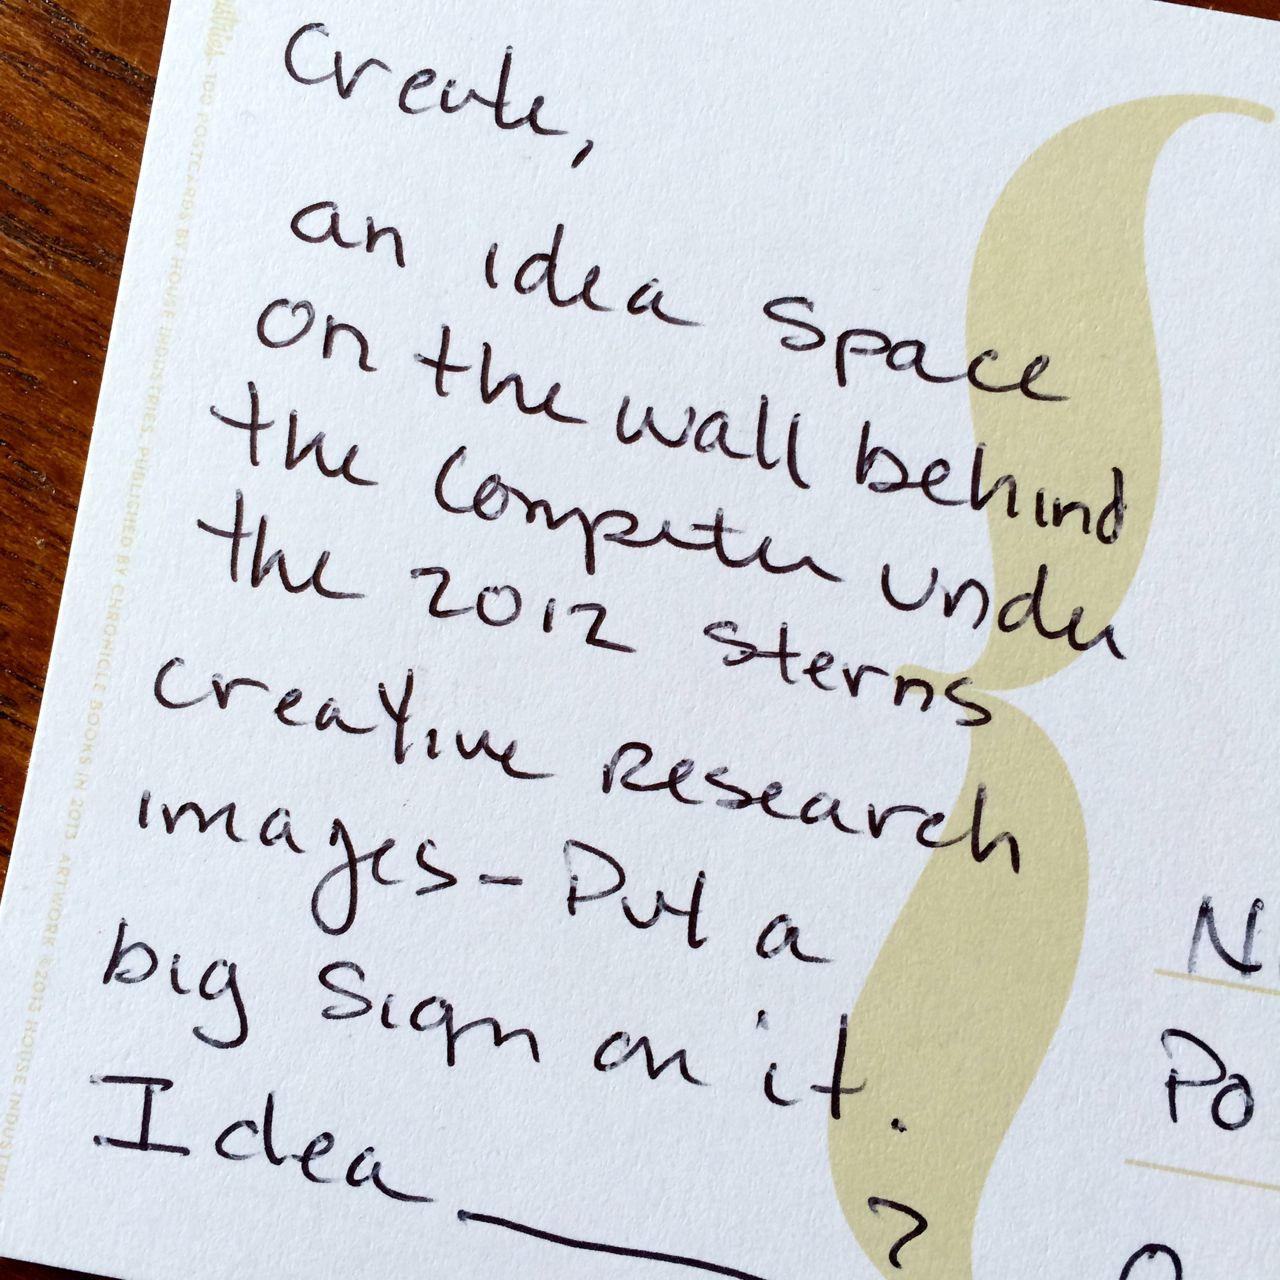 Create,
an idea space
on the wall behind
the computer under
the 2012 sterns
creative research
images - Put a
big sign on it.
Idea ________ ?
N
Po
100 POSTCARDS BY HOUSE INDUSTRIES, PUBLISHED BY CHRONICLE BOOKS IN 2013. ARTWORK ©2013 HOUSE INDUSTRIES